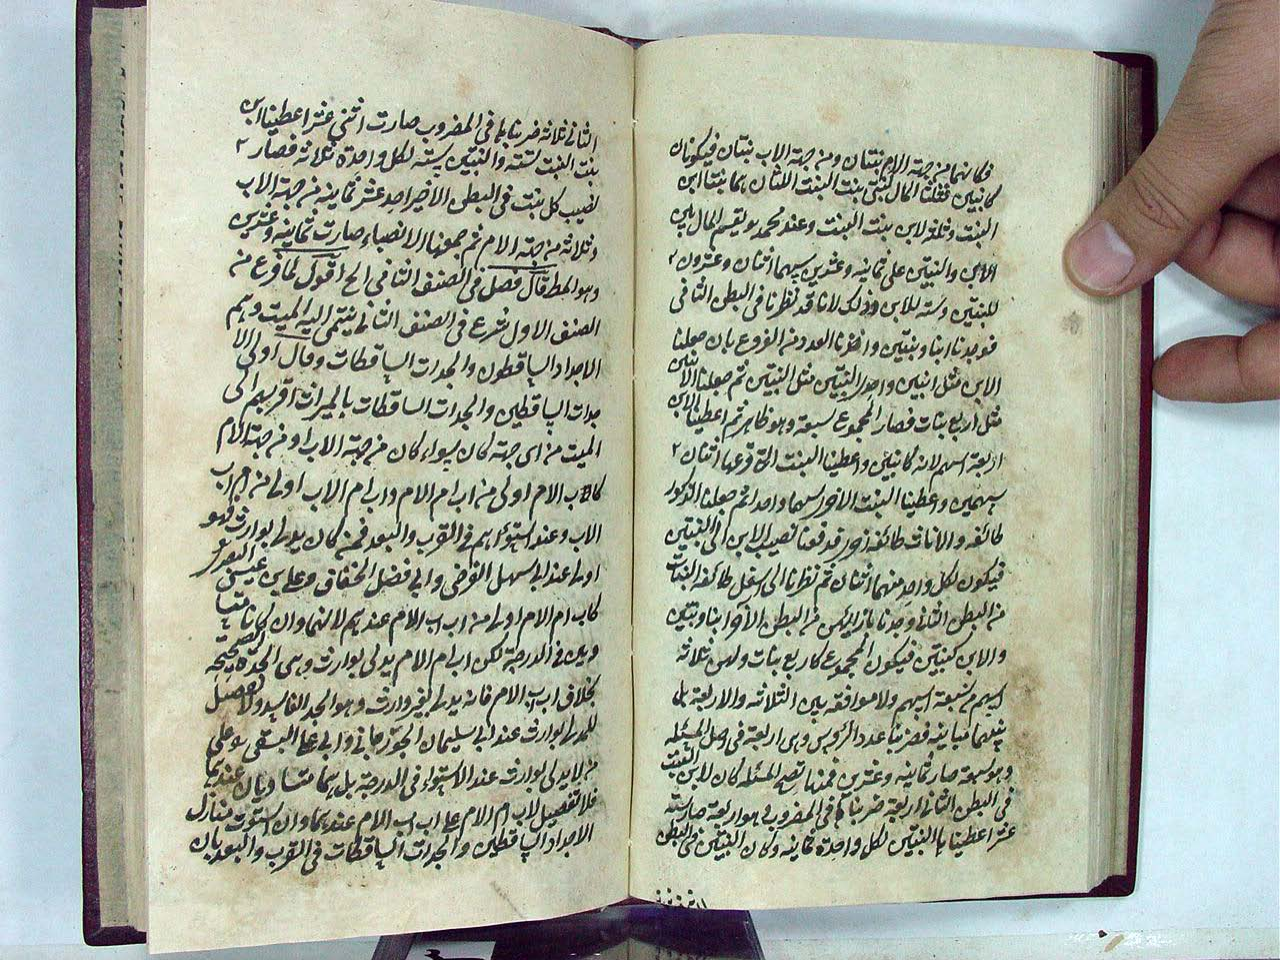 فكانهما من جهة الام بنتان ومن جهة الاب بنتان فيكونان
كابنين فثلثا المال لبنتي بنت البنت اللتان هما بنتا ابن
البنت وثلثه لابن بنت البنت وعند محمد يقسم المال بين
الابن والبنتين على ثمانية وعشرين سهما اثنان وعشرون
للبنتين وستة للابن وذلك لانا قد نظرنا في البطن الثاني
فوجدنا ابنا وبنتين واخذنا العدد من الفروع بان جعلنا
الابن مثل ابنين واحدى البنتين مثل البنتين ثم جعلنا الابنين
مثل اربع بنات فصار المجموع سبعة وهو ظاهر ثم اعطينا الابن
اربعة اسهم لانه كابنين واعطينا البنت التي فرعها اثنان
سهمين واعطينا البنت الاخرى سهما واحدا ثم جعلنا الذكور
طائفة والاناث طائفة اخرى فدفعنا نصيب الابن الى البنتين
فيكون لكل واحد منهما اثنان ثم نظرنا الى اسفل طائفة البنات
من البطن الثاني وجدنا بازائهن من البطن الآخر ابنا وبنتين
والابن كبنتين فيكون المجموع كاربع بنات ولهن ثلاثة
اسهم من سبعة اسهم ولا موافقة بين الثلاثة والاربعة بل
بينهما مباينة فضربنا عدد الرؤس وهي اربعة في اصل المسئلة
وهو سبعة صار ثمانية وعشرين فمنها تصح المسئلة كان لابن البنت
في البطن الثاني اربعة ضربناها في المضروب وهو اربعة صار ستة
عشر اعطيناها البنتين لكل واحدة ثمانية وكان للبنتين في البطن
الثاني ثلاثة ضربناها في المضروب صارت اثني عشر اعطينا ابن
بنت البنت ستة والبنتين ستة لكل واحدة ثلاثة فصار
نصيب كل بنت في البطن الاخير احد عشر ثمانية من جهة الاب
وثلاثة من جهة الام ثم جمعنا الانصباء صارت ثمانية وعشرين
وهو المط قال فصل في الصنف الثاني الخ اقول لما فرغ من
الصنف الاول شرع في الصنف الثاني ينتمى اليه الميت وهم
الاجداد الساقطون والجدات الساقطات وقال اولى الا
جداد الساقطين والجدات الساقطات بالميراث اقربهم الى
الميت من اي جهة كان سواء كان من جهة الاب او من جهة الام
كاب الام اولى من اب ام الام واب ام الاب اولى من اب ام اب
الاب وعند استوائهم في القرب والبعد فمن كان يدلي بوارث فهو
اولى عند ابي سهل الفرضي وابي فضل الخفاف وعلي بن عيسى البصري
كاب ام الام اولى من اب اب الام عندهم لانهما وان كانا متسا
ويين في الدرجة لكن اب ام الام يدلي بوارث وهي الجدة الصحيحة
بخلاف اب اب الام فانه يدلي بغير وارث وهو الجد الفاسد ولا تفضيل
للمدلي بوارث عند ابي سليمان الجوزجاني وابي علي البستي على
من لا يدلي بوارث عند الاستواء في الدرجة بل هما متساويان عندهما
فلا تفضيل لاب ام الام على اب اب الام عندهما وان استوت منازل
الاجداد الساقطين والجدات الساقطات في القرب والبعد بان